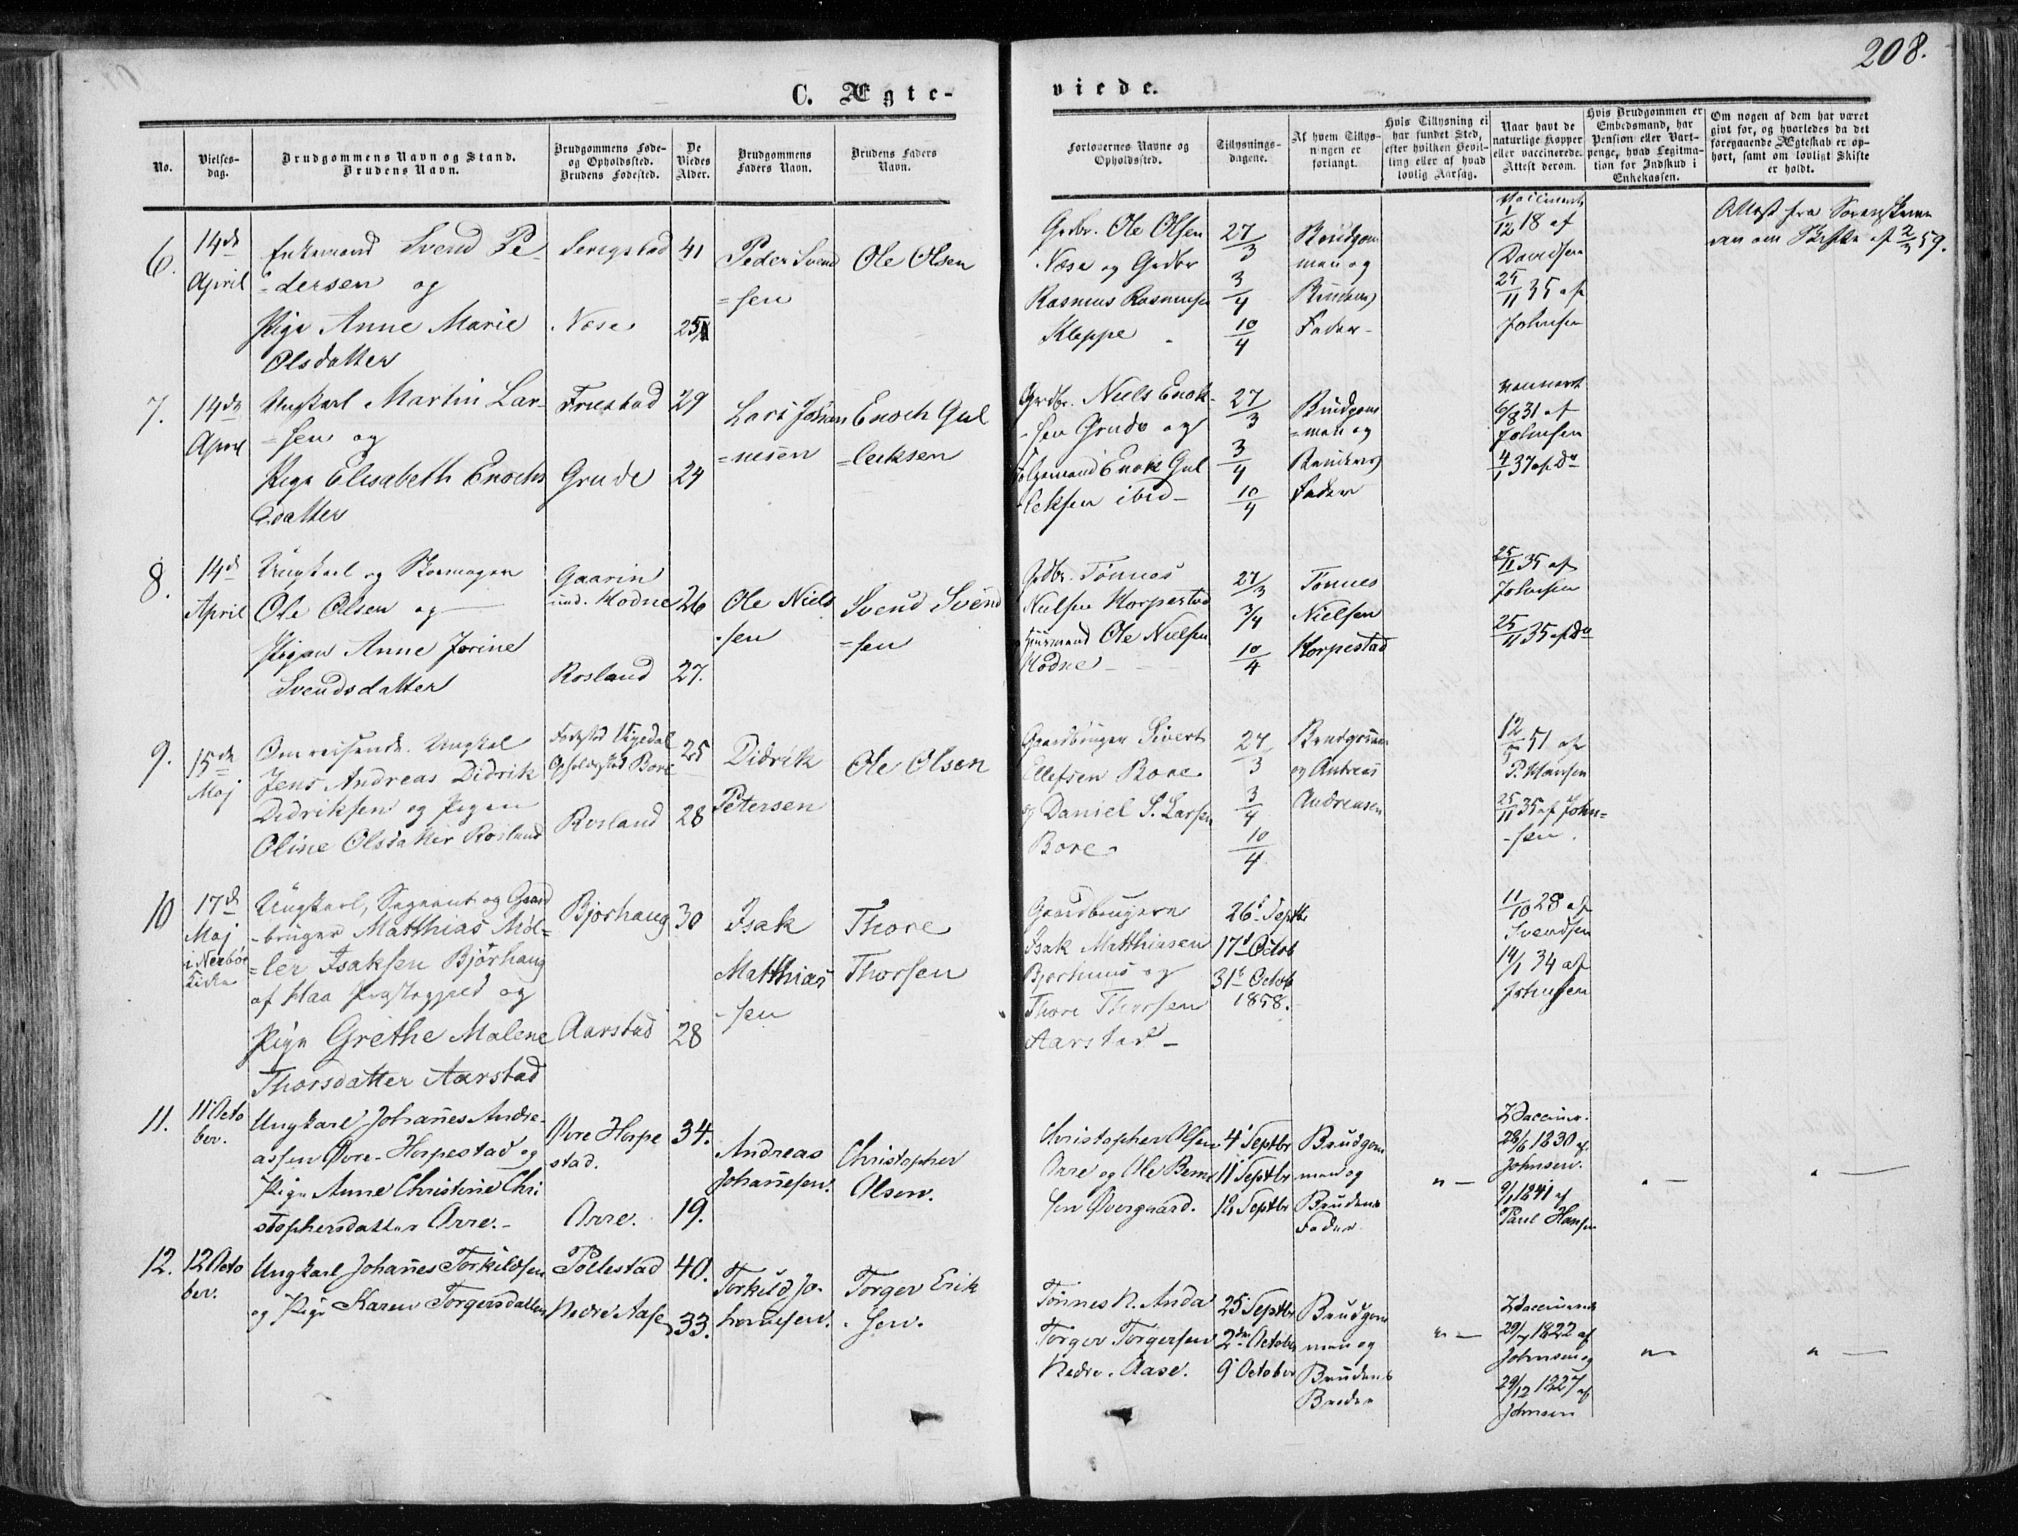 208.
C. Ægte-
viede.
No.
Vielses-
dag.
Brudgommens Navn og Stand.
Brudens Navn.
Brudgommens Føde-
og Opholdssted.
Brudens Fødested.
De
Viedes
Alder.
Brudgommens
Faders Navn.
Brudens Faders
Navn.
Forlovernes Navne og
Opholdssted.
Tillysnings-
dagene.
Af hvem Tillys-
ningen er
forlangt.
Hvis Tillysning ei
har fundet Sted,
efter hvilken Bevil-
ling eller af hvad
lovlig Aarsag.
Naar havt de
naturlige Kopper
eller vaccinerede.
Attest derom.
Hvis Brudgommen er
Embedsmand, har
Pension eller Vart-
penge, hvad Legitma-
tion for Indskud i
Enkekassen.
Om nogen af dem har været
givt før, og hvorledes da det
foregaaende Ægteskab er op-
hørt, samt om lovligt Skifte
er holdt.
6.
14de
April
Enkemand Svend Pe-
dersen og
Pige Anne Marie
Olsdatter
Serigstad
Næse
41
25
Peder Svend
=sen
Ole Olsen
Grdbr. Ole Olsen
Næse og Grdbr
Rasmus Rasmusen
Kleppe
27/3
3/4
10/4
Brudgom
men og
Brudens
Fader
1/12 18 af
Davidsen
25/11 35 af
Johnsen
Attest fra Sorenskrive
ren om Skifte af 2/3 59.
7.
14de
April
Ungkarl Martin Lar-
=sen og
Pige Elisabeth Enochs
datter
Friestad
Grude
29
24
Lars Johan
=nesen
Enoch Gul
=leiksen
Grdbr. Niels Enok-
-sen Grude og
Enok Gul
-leksen ibid-
27/3
3/4
10/4
Brudgom
=men og
Brudens
Fader
6/8 31 af
Johnsen
4/1 37 af Do
8.
14de
April
Ungkarl og Skomager
Ole Olsen og
Pigen Anne Jorine
Svendsdatter
Gaarin
und. Hodne
Rosland
26
27.
Ole Niels
-sen
Svend Svend
=sen
Grdbr. Tønnes
Nielsen Horpestad
Huusmand Ole Nielsen
Hodne
27/3
3/4
10/4
Tønnes
Nielsen
Horpestad
25/11 35 af
Johnsen
25/11 35 af Do
9.
15de
Maj
Omreisende. Ungkal
Jens Andreas Didrik
Didriksen og Pigen
Oline Olsdatter Rosland
Fødested Vigedal
Opholdssted Bore
Rosland
25
28
Didrik
Petersen
Ole Olsen
Gaardbruger Sivert
Ellefsen Bore
og Daniel S. Larsen
Bore
27/3
3/4
10/4
Brudgommen
og Andreas
Andreasen
12/5 51 af
P. Hansen
25/11 35 af John=
-sen.
10
17de
Maj
i Nærbø
Kirke
Ungkarl, Sergeant og Gaard
-bruger Matthias Møl=
=ler Isaksen Bjorhaug
af Haa Præstegjeld og
Pige Grethe Malene
Thorsdatter Aarstad
Bjorhaug
Aarstad
30
28
Isak
Matthias
-sen
Thore
Thorsen
Gaardbrugere
Isak Matthiasen
Bjorhaug og
Thore Thorsen
Aarstad-
26d Septbr
17d Octob
31d Octob
1858.
11/10 28 af
Svendsen
14/1 34 af
Johnsen
11.
11 Octo
ber.
Ungkarl Johannes Andre-
assen Øvre-Horpestad og
Pige Anne Christine Chri
stophersdatter Orre.-
Øvre Horpe
stad.
Orre.
34.
19.
Andreas
Johannesen.
Christopher
Olsen.
Christopher Olsen
Orre og Ole Bernt
sen Overgaard.
4 Septbr
11 Septbr
18 Septbr
Brudgom
men og
Brudens
Fader.
Vaccine.
28/6 1830 af
Johnsen.
9/1 1841 af
Paul Hansen
12.
12 Octo
ber.
Ungkarl Johannes Torkildsen
og Pige Karen Torgersdatter
Tøllestad
Nedre Aase
40.
33.
Torkild Jo-
hannesen.
Torger Erik
-sen.
Tønnes N. Anda
Torger Torgersen
Nedre. Aase.
25 Septbr
2den October
9 October
Brudgom
men og
Brudens
Broder
Vaccinerede
29/7 1822 af
Johnsen og
29/12 1827 af
Johnsen